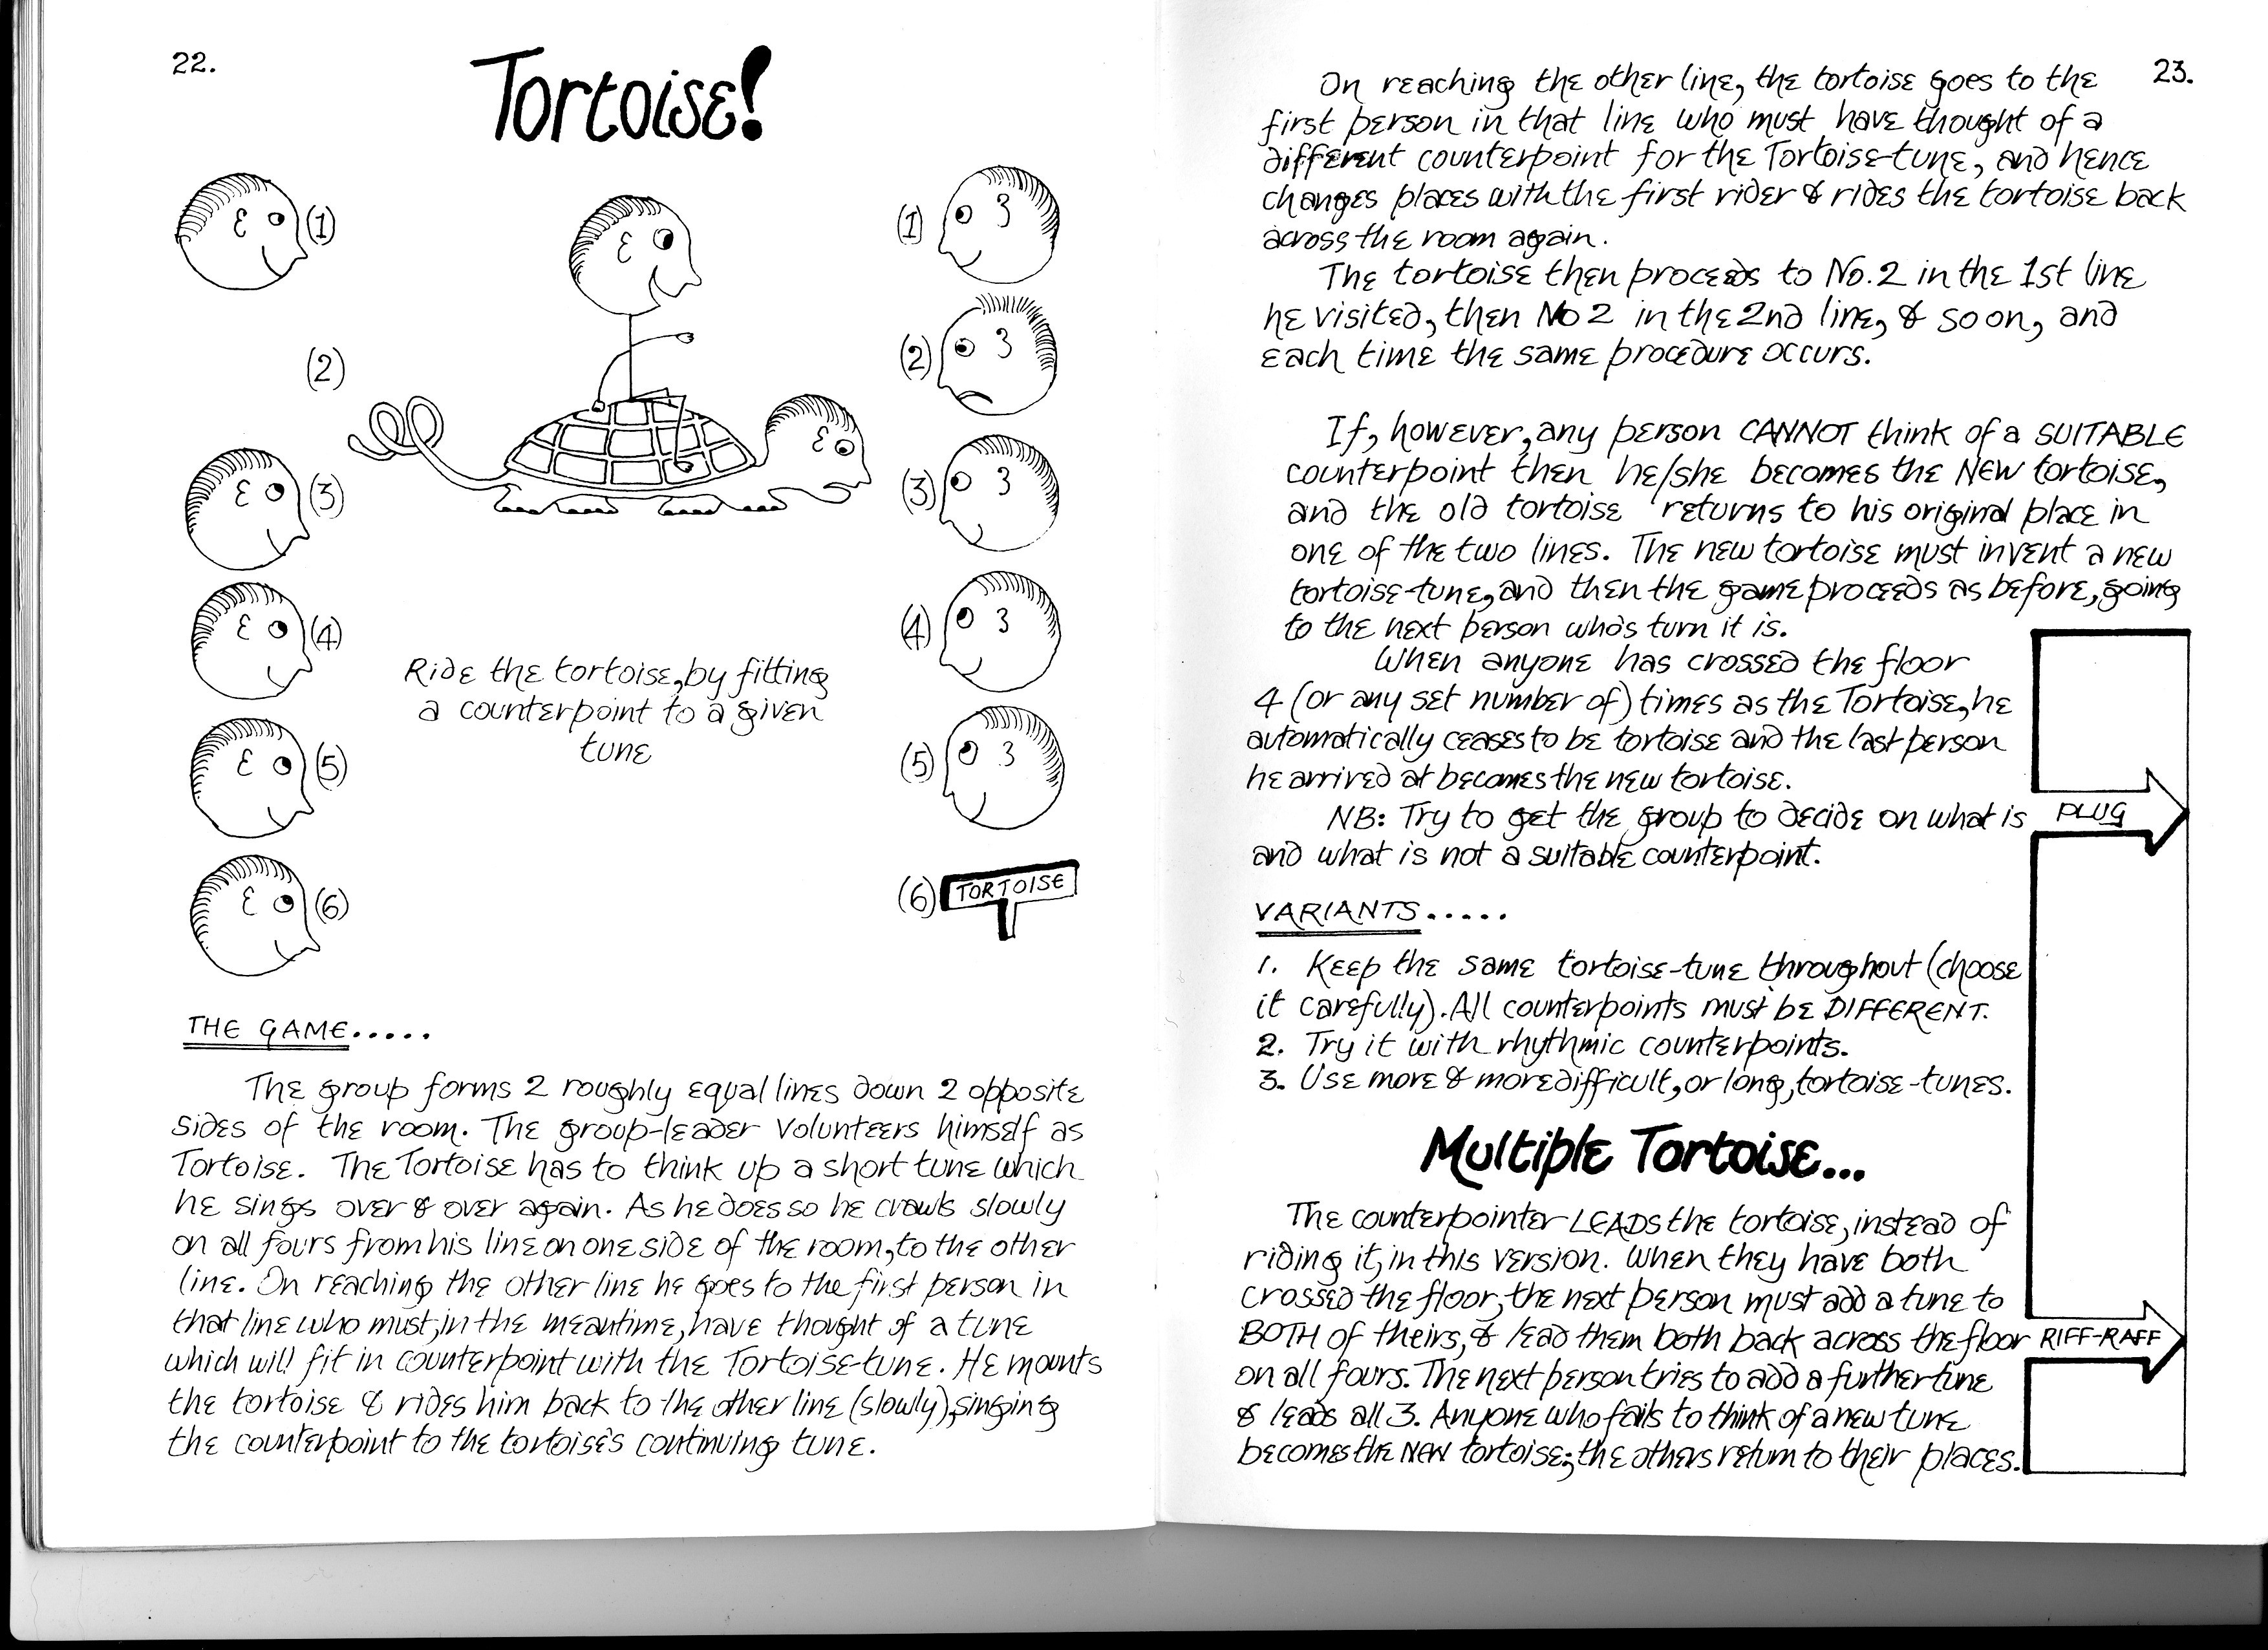 22.
Tortoise!
(1)
(1)
(2)
(2)
(3)
(3)
(4)
(4)
(5)
(5)
(6)
(6) TORTOISE
Ride the tortoise, by fitting
a counterpoint to a given
tune
THE GAME.....
The group forms 2 roughly equal lines down 2 opposite
sides of the room. The group-leader volunteers himself as
Tortoise. The Tortoise has to think up a short tune which
he sings over & over again. As he does so he crawls slowly
on all fours from his line on one side of the room, to the other
line. On reaching the other line he goes to the first person in
that line who must, in the meantime, have thought of a tune
which will fit in counterpoint with the Tortoise-tune. He mounts
the tortoise & rides him back to the other line (slowly), singing
the counterpoint to the tortoise's continuing tune.
23.
On reaching the other line, the tortoise goes to the
first person in that line who must have thought of a
different counterpoint for the Tortoise-tune, and hence
changes places with the first rider & rides the tortoise back
across the room again.
The tortoise then proceeds to No. 2 in the 1st line
he visited, then No 2 in the 2nd line, & so on, and
each time the same procedure occurs.
If, however, any person CANNOT think of a SUITABLE
counterpoint then he/she becomes the NEW tortoise,
and the old tortoise returns to his original place in
one of the two lines. The new tortoise must invent a new
tortoise-tune, and then the game proceeds as before, going
to the next person who's turn it is.
When anyone has crossed the floor
4 (or any set number of) times as the Tortoise, he
automatically ceases to be tortoise and the last person
he arrived at becomes the new tortoise.
NB: Try to get the group to decide on what is
and what is not a suitable counterpoint.
PLUG
VARIANTS.....
1. Keep the same tortoise-tune throughout (choose
it carefully). All counterpoints must be DIFFERENT.
2. Try it with rhythmic counterpoints.
3. Use more & more difficult, or long, tortoise-tunes.
Multiple Tortoise...
The counterpointer LEADS the tortoise, instead of
riding it, in this version. When they have both
crossed the floor, the next person must add a tune to
BOTH of theirs, & lead them both back across the floor
on all fours. The next person tries to add a further tune
& leads all 3. Anyone who fails to think of a new tune
becomes the NEW tortoise; the others return to their places.
RIFF-RAFF